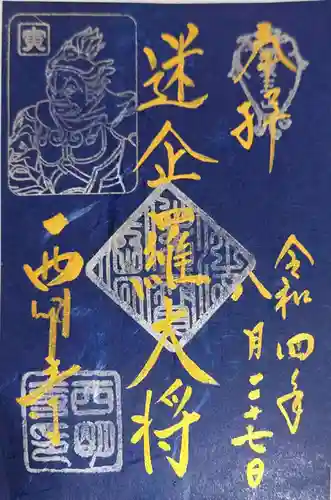 奉拝
令和四年
八月二十七日
迷企羅大将
西明寺
寅
西明寺